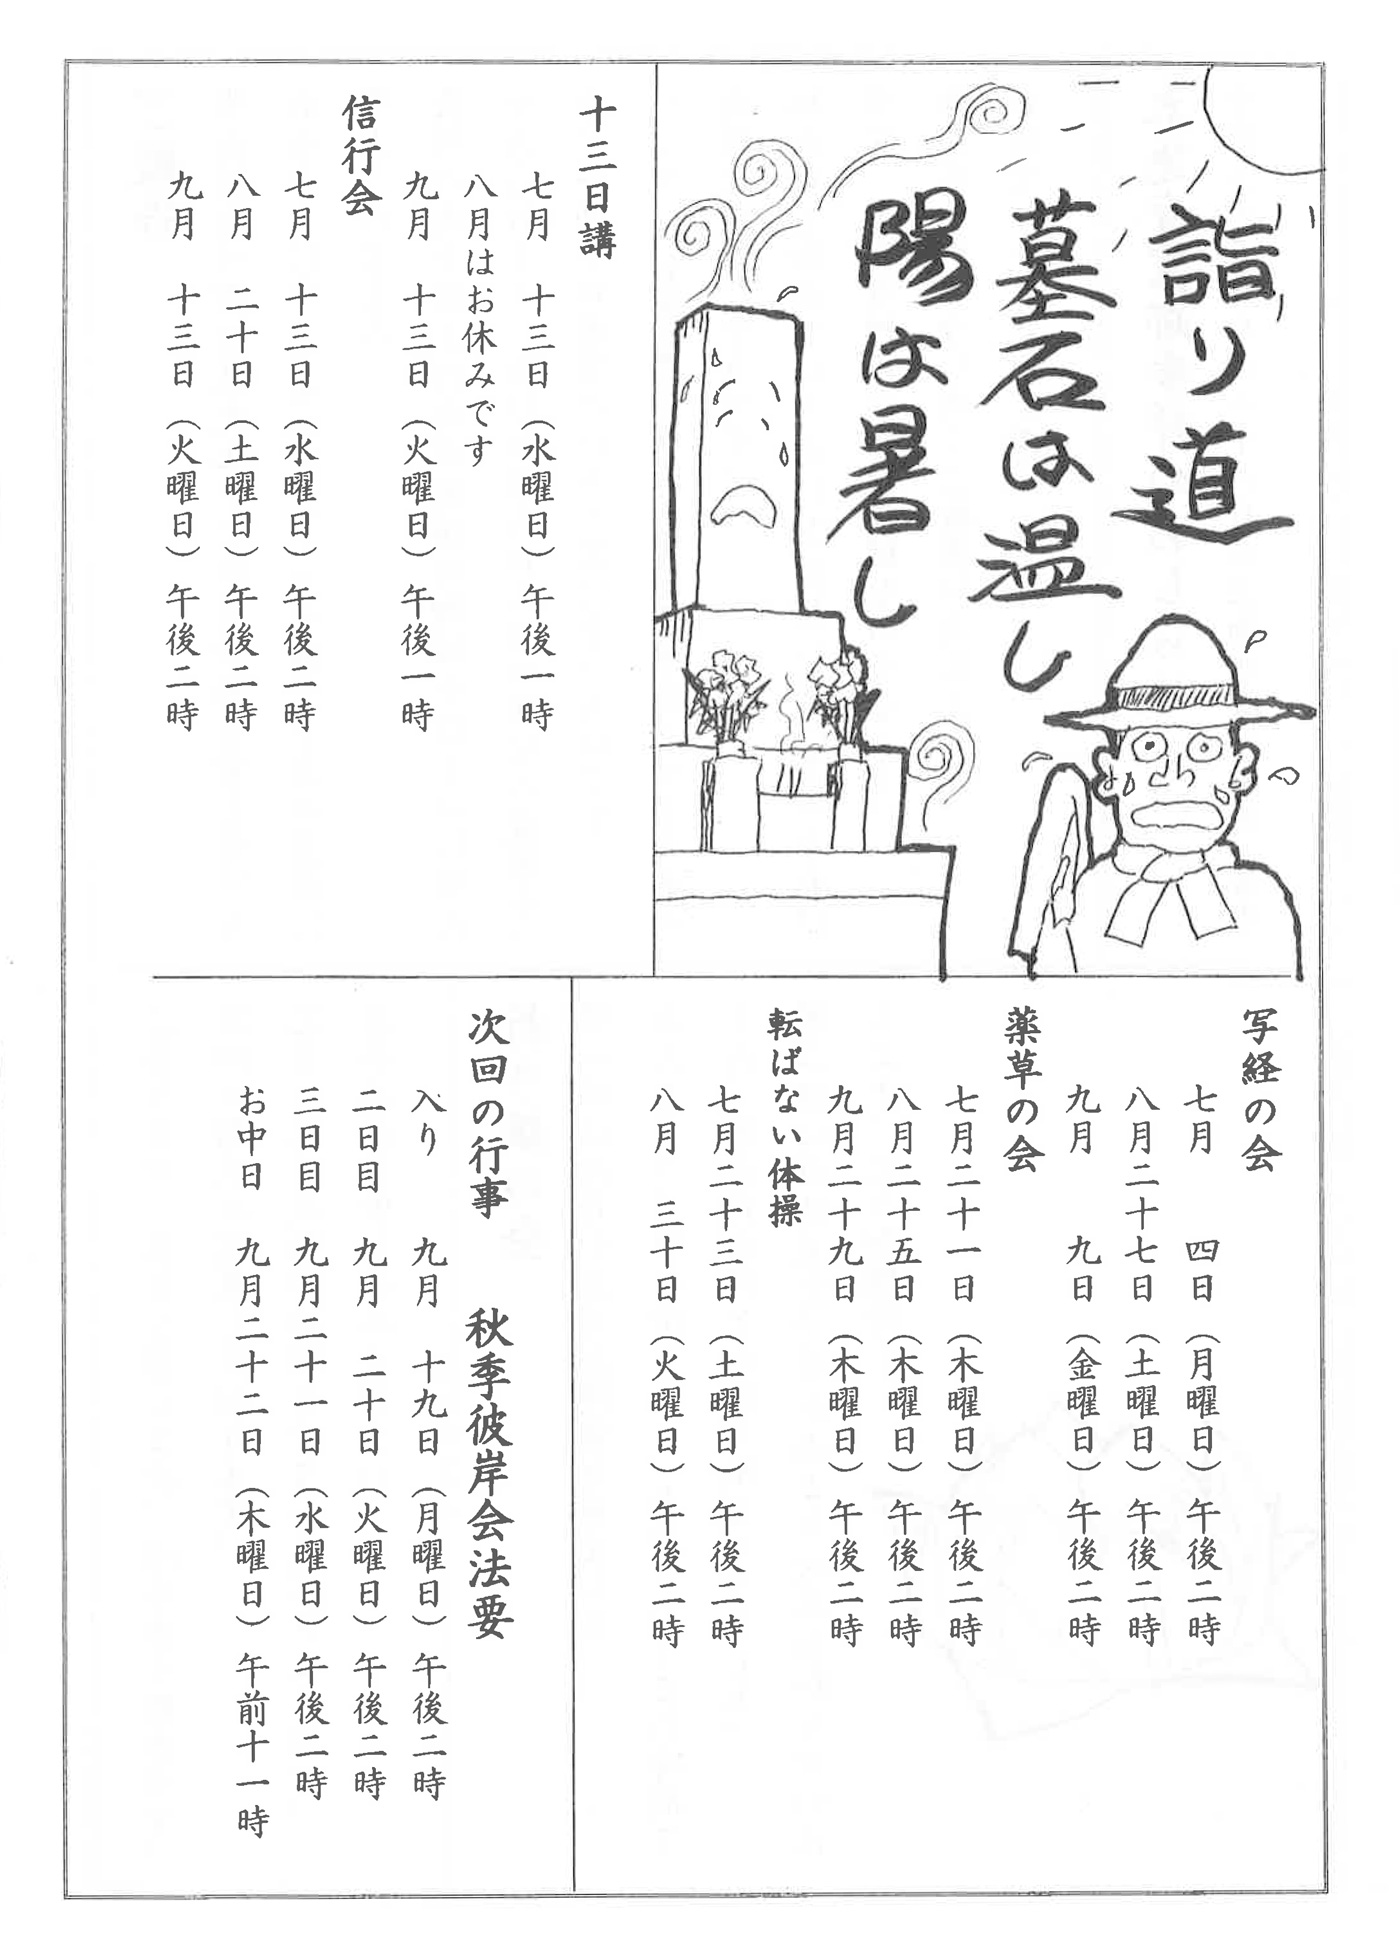 詣り道
墓石は温し
陽は暑し
十三日講
七月　十三日（水曜日）午後一時
八月はお休みです
九月　十三日（火曜日）午後一時
信行会
七月　十三日（水曜日）午後二時
八月　二十日（土曜日）午後二時
九月　十三日（火曜日）午後二時
写経の会
七月　　四日（月曜日）午後二時
八月二十七日（土曜日）午後二時
九月　　九日（金曜日）午後二時
薬草の会
七月二十一日（木曜日）午後二時
八月二十五日（木曜日）午後二時
九月二十九日（木曜日）午後二時
転ばない体操
七月二十三日（土曜日）午後二時
八月　三十日（火曜日）午後二時
次回の行事　秋季彼岸会法要
入り　　九月　十九日（月曜日）午後二時
二日目　九月　二十日（火曜日）午後二時
三日目　九月二十一日（水曜日）午後二時
お中日　九月二十二日（木曜日）午前十一時